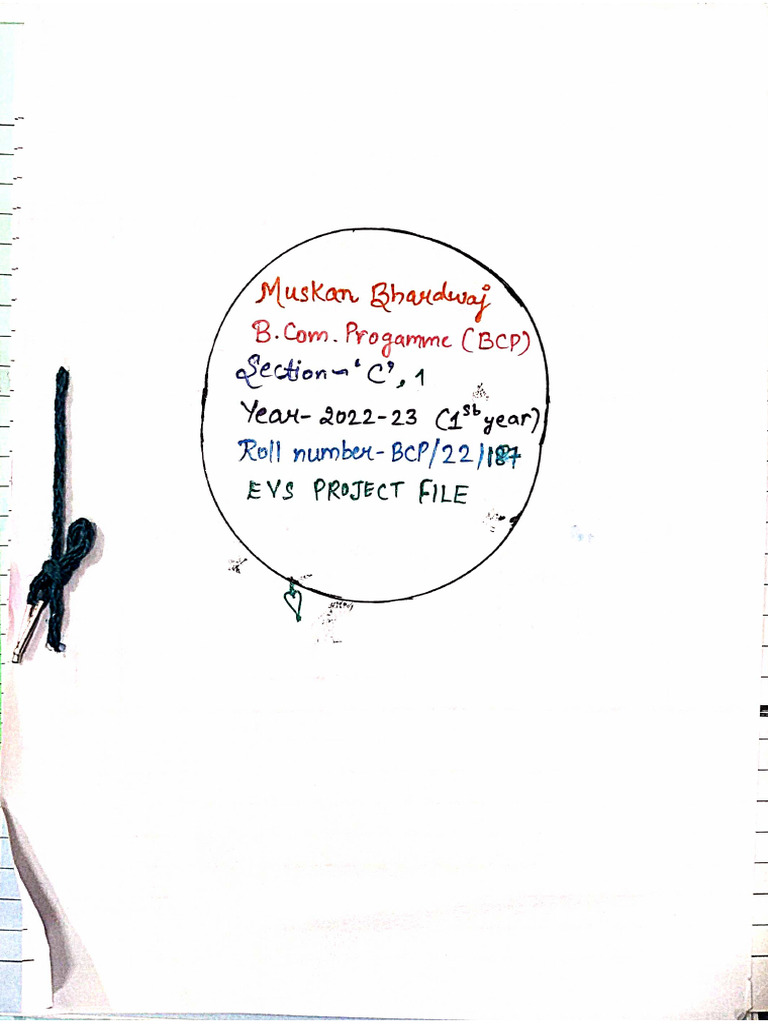 Muskan Bhardwaj
B.Com. Progamme (BCP)
Section - 'C', 1
Year - 2022-23 (1st year)
Roll number - BCP/22/187
EVS PROJECT FILE